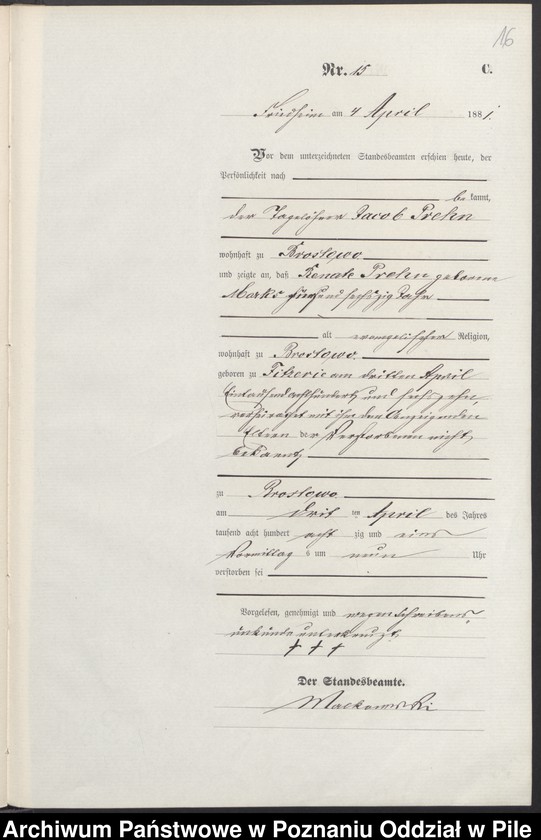 16
Nr. 15 C.
Friedheim am 4 April 1881.
Vor dem unterzeichneten Standesbeamten erschien heute, der
Persönlichkeit nach
bekannt,
der Tagelöhner Jacob Prehn
wohnhaft zu Brostowo
und zeigte an, daß Renate Prehn geborene
Marks fünfundsechzig Jahr
alt evangelischer Religion,
wohnhaft zu Brostowo
geboren zu am dritten April
Eintausendachthundert und sechszehn,
verheirathet mit ihm dem Anzeigenden
Eltern der Verstorbenen nicht
bekannt
zu Brostowo
am dritten April des Jahres
tausend acht hundert achtzig und eins
Vormittags um neun Uhr
verstorben sei
Vorgelesen, genehmigt und wegen Schreibens
unkunde unterkreuzt
+ + +
Der Standesbeamte.
Malkowski
Archiwum Państwowe w Poznaniu Oddział w Pile